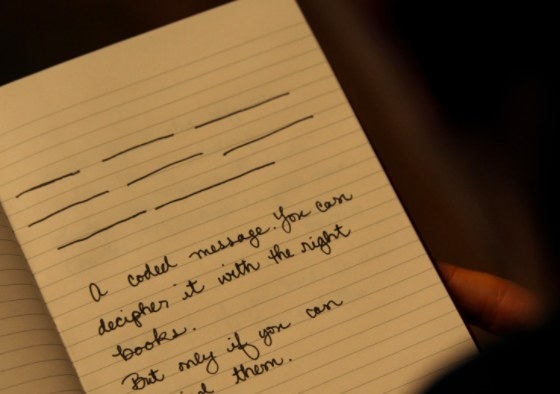 A coded message. You can
decipher it with the right
books.
But only if you can
them.